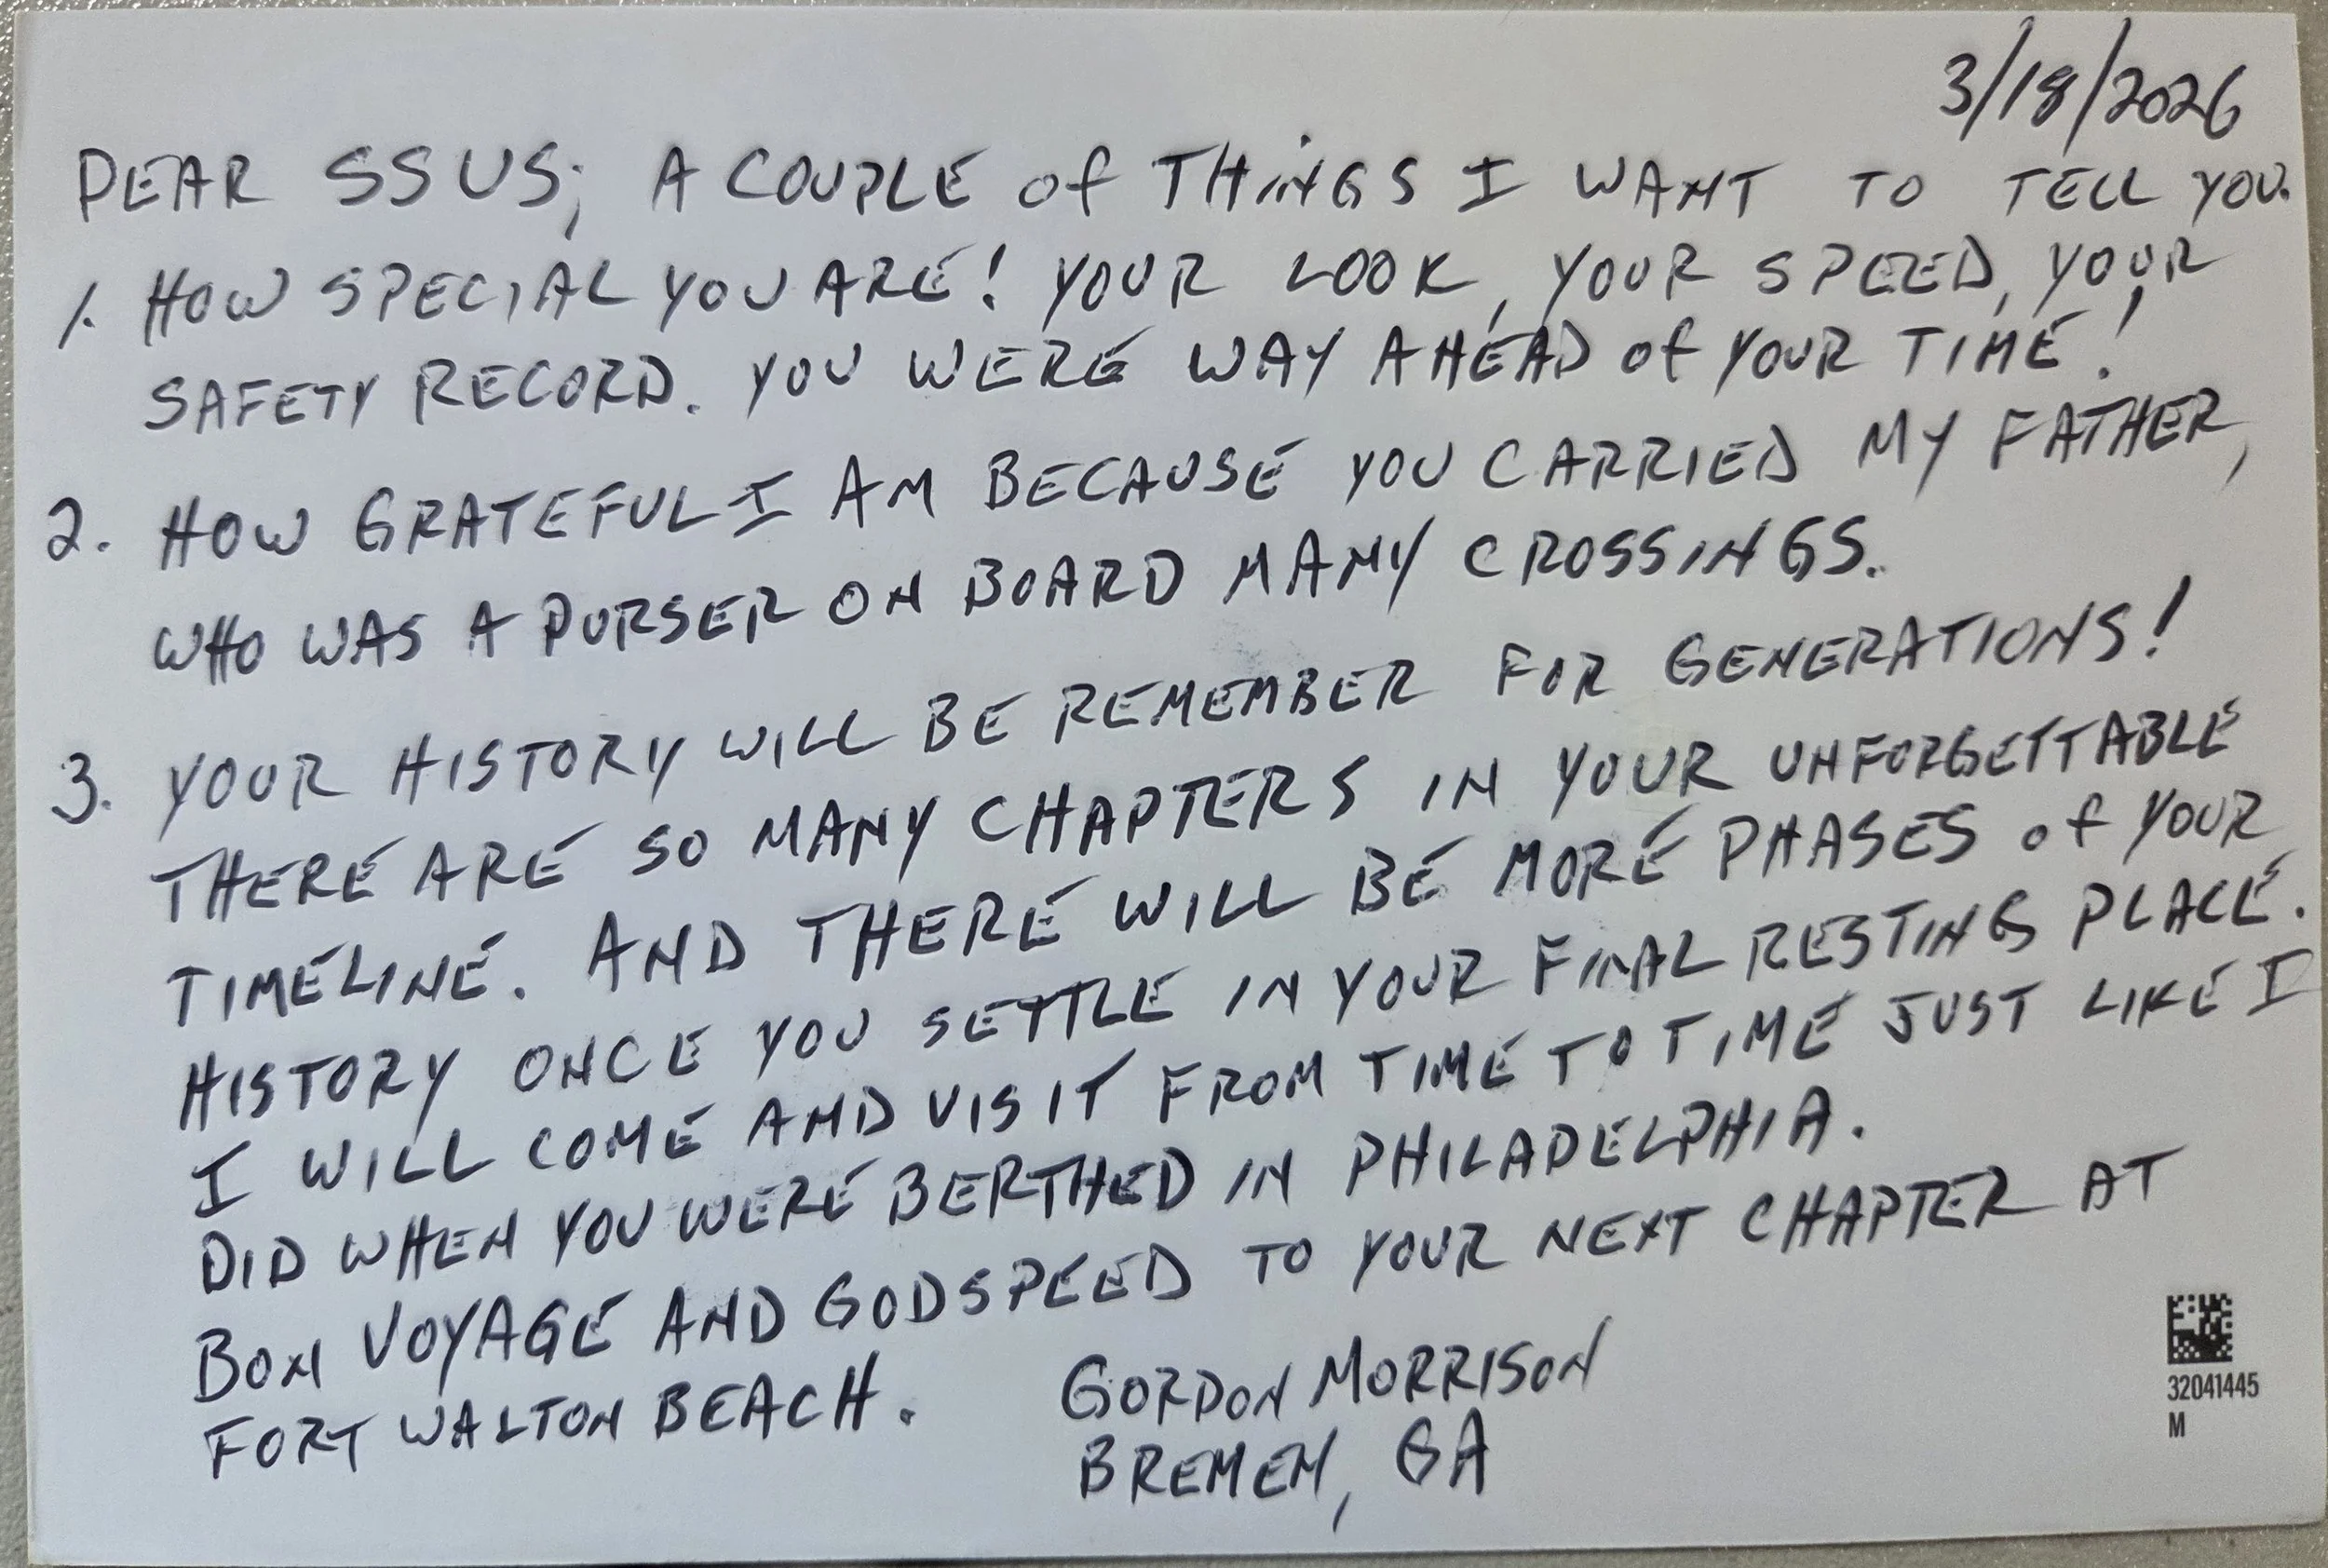 3/18/2026
DEAR SS US; A COUPLE of THiNGS I WANT TO TELL YOU.
1. HOW SPECIAL YOU ARE! YOUR LOOK, YOUR SPEED, YOUR
SAFETY RECORD. YOU WERE WAY AHEAD of YOUR TIME!
2. HOW GRATEFUL I AM BECAUSE YOU CARRIED MY FATHER,
WHO WAS A PURSER ON BOARD MANY CROSSINGS.
3. YOUR HISTORY WILL BE REMEMBER FOR GENERATIONS!
THERE ARE SO MANY CHAPTERS IN YOUR UNFORGETTABLE
TIMELINE. AND THERE WILL BE MORE PHASES of YOUR
HISTORY ONCE YOU SETTLE IN YOUR FINAL RESTING PLACE.
I WILL COME AND VISIT FROM TIME TO TIME JUST LIKE I
DID WHEN YOU WERE BERTHED IN PHILADELPHIA.
BON VOYAGE AND GODSPEED TO YOUR NEXT CHAPTER AT
FORT WALTON BEACH.
GORDON MORRISON
BREMEN, GA
32041445
M